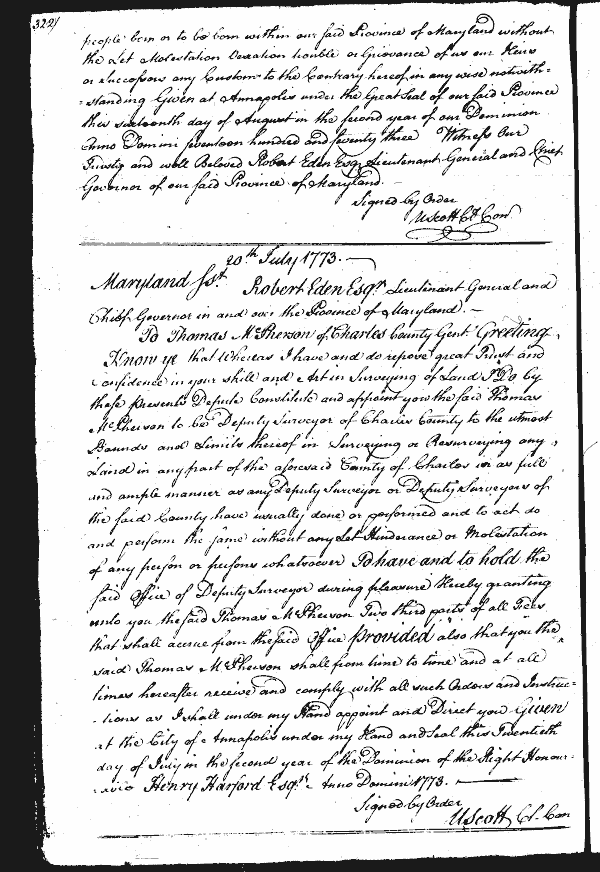 322)
people born or to be born within our said Province of Maryland without
the Let Molestation Vexation trouble or Grievance of us our Heirs
or Successors any Custom to the Contrary hereof in any wise notwith=
=standing Given at Annapolis under the Great Seal of our said Province
this sixteenth day of August in the second year of our Dominion
Anno Domini Seventeen hundred and seventy three Witness Our
Trusty and well Beloved Robert Eden Esqr Lieutenant General and Chief
Governor of our said Province of Maryland.
Signed by Order
U Scott Cl Con
20th July 1773. —
Maryland Sst. Robert Eden Esqr Lieutenant General and
Chief Governor in and over the Province of Maryland. —
To Thomas McPherson of Charles County Gent. Greeting
Know ye that Whereas I have and do repose great Trust and
Confidence in your skill and Art in Surveying of Land I Do by
these presents Depute Constitute and appoint you the said Thomas
McPherson to be Deputy Surveyor of Charles County to the utmost
Bounds and Limits thereof in Surveying or Resurveying any
Land in any part of the aforesaid County of Charles in as full
and ample manner as any Deputy Surveyor or Deputy Surveyors of
the said County have usually done or performed and to act do
and perform the same without any Let Hinderance or Molestation
of any person or persons whatsoever To have and to hold the
said Office of Deputy Surveyor during pleasure Hereby granting
unto you the said Thomas McPherson Two third parts of all Fees
that shall accrue from the said Office provided also that you the
said Thomas McPherson shall from time to time and at all
times hereafter receive and comply with all such Orders and Instruc=
=tions as I shall under my Hand appoint and Direct you Given
at the City of Annapolis under my Hand and Seal this Twentieth
day of July in the second year of the Dominion of the Right Honour=
Henry Harford Esqr. Anno Domini 1773. —
Signed by Order
U Scott Cl. Con